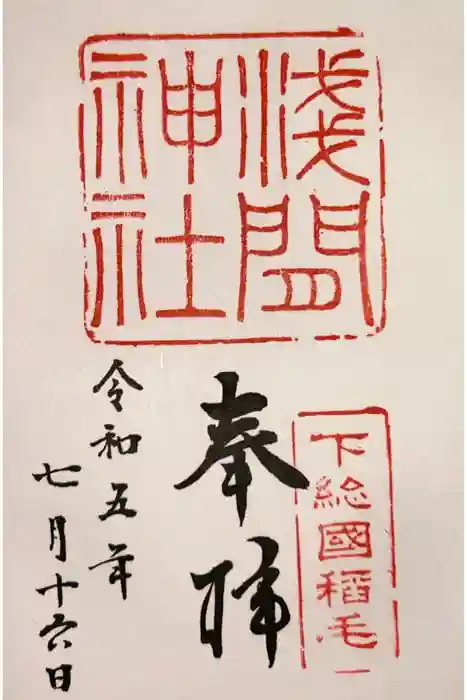 淺間
神社
下総國稲毛
奉拝
令和五年
七月十六日